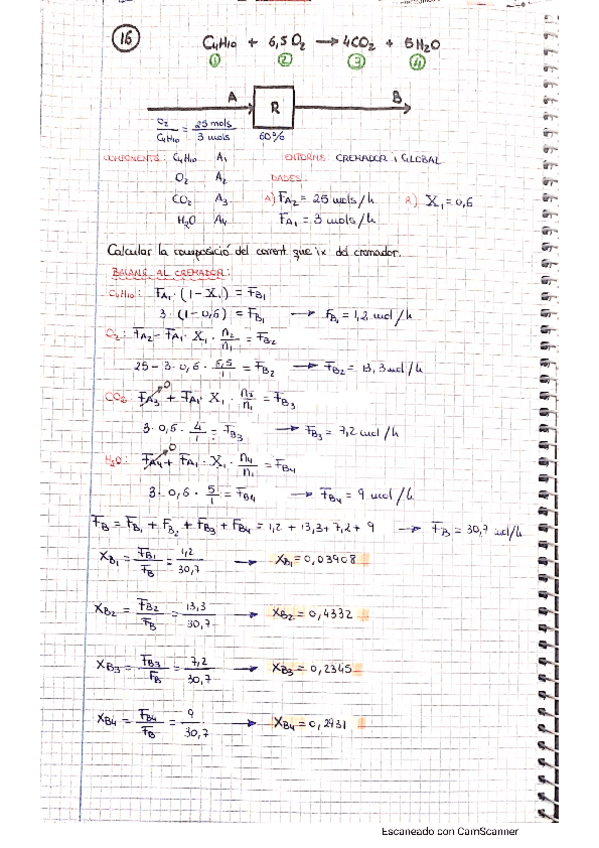 16
C4H10 + 6,5 O2 → 4CO2 + 5H2O
1 2 3 4
A R B
O2/C4H10 = 25 mols/3 mols
60%
COMPONENTS: C4H10 A1
O2 A2
CO2 A3
H2O A4
ENTORNS: CREMADOR i GLOBAL
DADES:
A) FA2 = 25 mols/h R) X1 = 0,6
FA1 = 3 mols/h
Calcular la composició del corrent que ix del cremador.
BALANÇ AL CREMADOR:
C4H10: FA1 · (1 - X1) = FB1
3 · (1 - 0,6) = FB1 → FB1 = 1,2 mol/h
O2: FA2 - FA1 · X1 · n2/n1 = FB2
25 - 3 · 0,6 · 6,5/1 = FB2 → FB2 = 13,3 mol/h
CO2: FA3 0 + FA1 · X1 · n3/n1 = FB3
3 · 0,6 · 4/1 = FB3 → FB3 = 7,2 mol/h
H2O: FA4 0 + FA1 · X1 · n4/n1 = FB4
3 · 0,6 · 5/1 = FB4 → FB4 = 9 mol/h
FB = FB1 + FB2 + FB3 + FB4 = 1,2 + 13,3 + 7,2 + 9 → FB = 30,7 mol/h
XB1 = FB1/FB = 1,2/30,7 → XB1 = 0,03908
XB2 = FB2/FB = 13,3/30,7 → XB2 = 0,4332
XB3 = FB3/FB = 7,2/30,7 → XB3 = 0,2345
XB4 = FB4/FB = 9/30,7 → XB4 = 0,2931
Escaneado con CamScanner